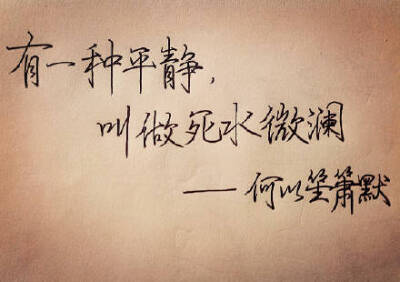 有一种平静,
叫做死水微澜
——何以笙箫默